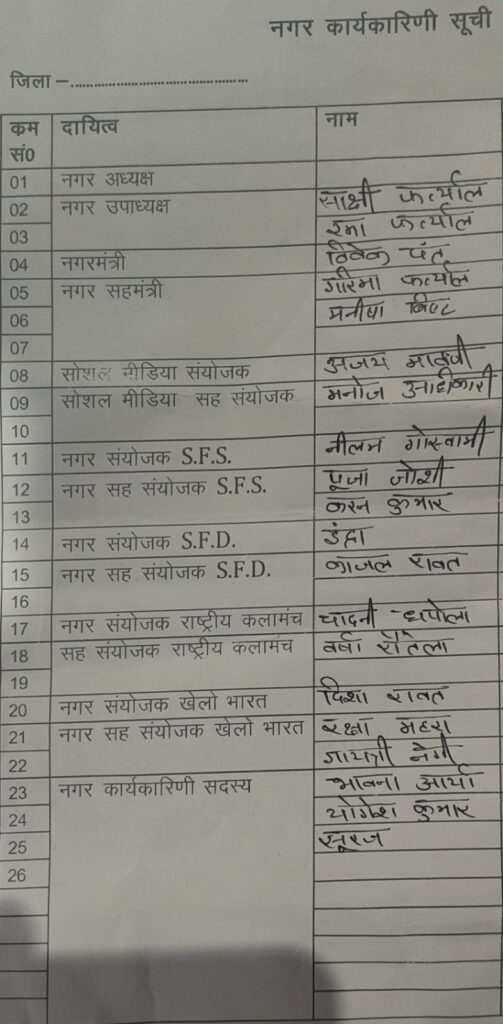 नगर कार्यकारिणी सूची
जिला –................................................
कम सं0 दायित्व नाम
01 नगर अध्यक्ष
02 नगर उपाध्यक्ष साक्षी फर्त्याल
03 रमा फर्त्याल
04 नगरमंत्री विवेक पंत
05 नगर सहमंत्री गरिमा फर्त्याल
06 मनीषा बिष्ट
07
08 सोशल मीडिया संयोजक अजय
09 सोशल मीडिया सह संयोजक मनोज आधिकारी
10
11 नगर संयोजक S.F.S. नीलम गोस्वामी
12 नगर सह संयोजक S.F.S. पूजा जोशी
13 करन कुमार
14 नगर संयोजक S.F.D.
15 नगर सह संयोजक S.F.D. काजल रावत
16
17 नगर संयोजक राष्ट्रीय कलामंच चादनी धपोला
18 सह संयोजक राष्ट्रीय कलामंच वर्षा रौतेला
19
20 नगर संयोजक खेलो भारत दिशा रावत
21 नगर सह संयोजक खेलो भारत रक्षा महरा
22 गायत्री नेगी
23 नगर कार्यकारिणी सदस्य भावना आर्या
24 योगेश कुमार
25 सूरज
26